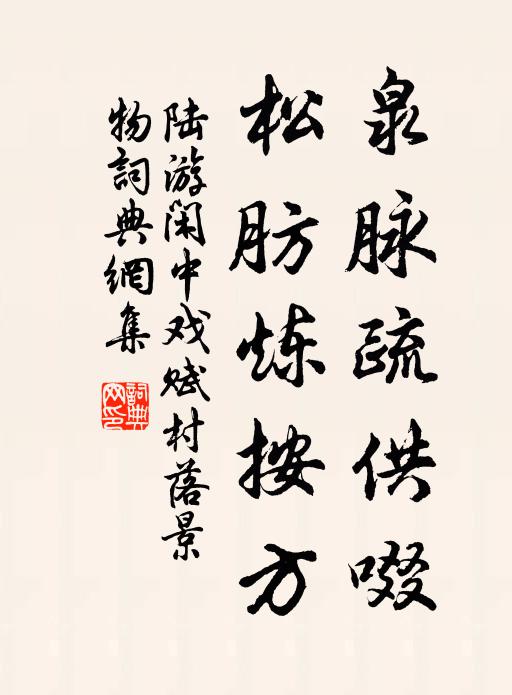 泉脉疏供啜
松肪炼按方
陆游闲中戏赋村落景
物詞典網集
詞典網印